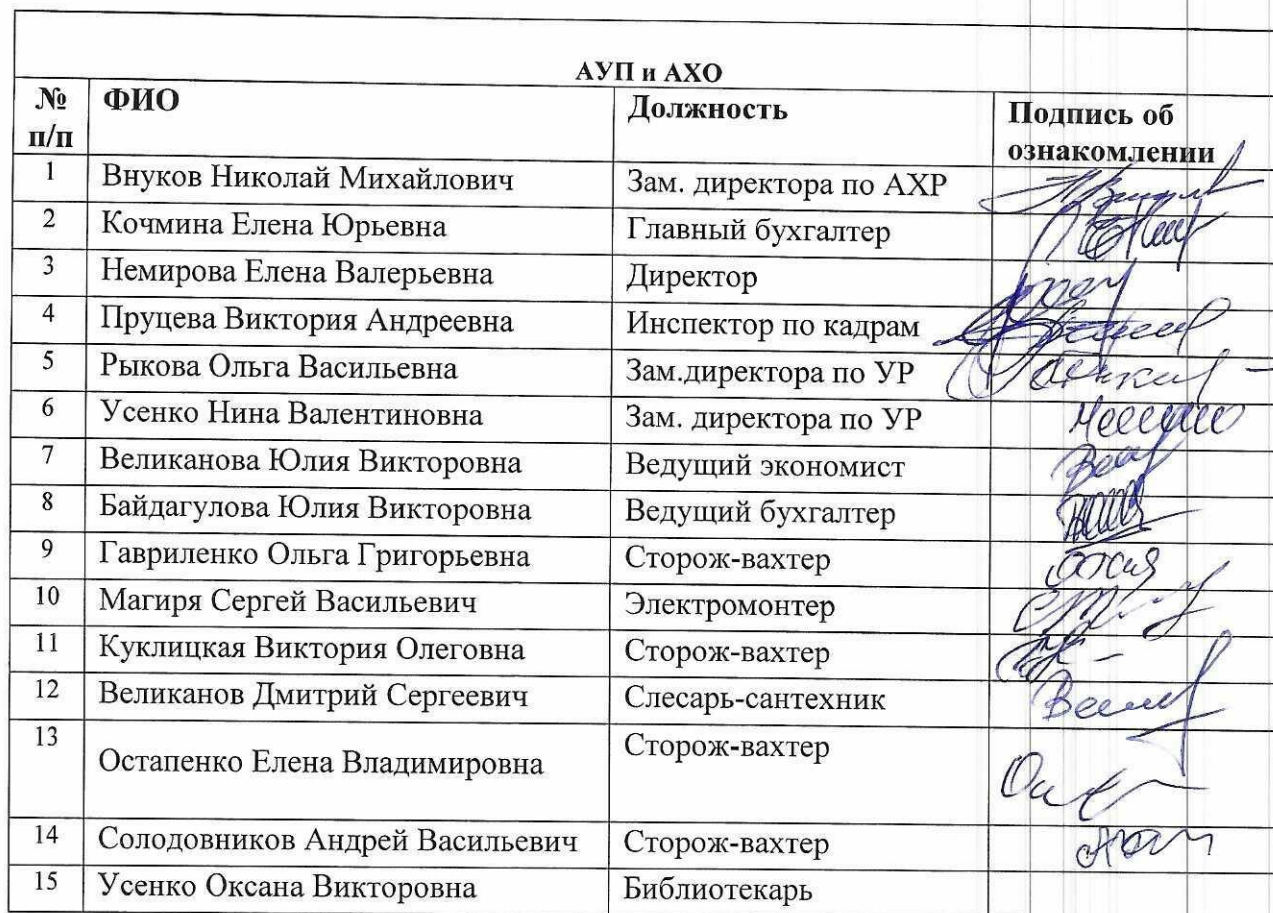 АУП и АХО
№ п/п ФИО Должность Подпись об ознакомлении
1 Внуков Николай Михайлович Зам. директора по АХР
2 Кочмина Елена Юрьевна Главный бухгалтер
3 Немирова Елена Валерьевна Директор
4 Пруцева Виктория Андреевна Инспектор по кадрам
5 Рыкова Ольга Васильевна Зам.директора по УР
6 Усенко Нина Валентиновна Зам. директора по УР
7 Великанова Юлия Викторовна Ведущий экономист
8 Байдагулова Юлия Викторовна Ведущий бухгалтер
9 Гавриленко Ольга Григорьевна Сторож-вахтер
10 Магиря Сергей Васильевич Электромонтер
11 Куклицкая Виктория Олеговна Сторож-вахтер
12 Великанов Дмитрий Сергеевич Слесарь-сантехник
13 Остапенко Елена Владимировна Сторож-вахтер
14 Солодовников Андрей Васильевич Сторож-вахтер
15 Усенко Оксана Викторовна Библиотекарь